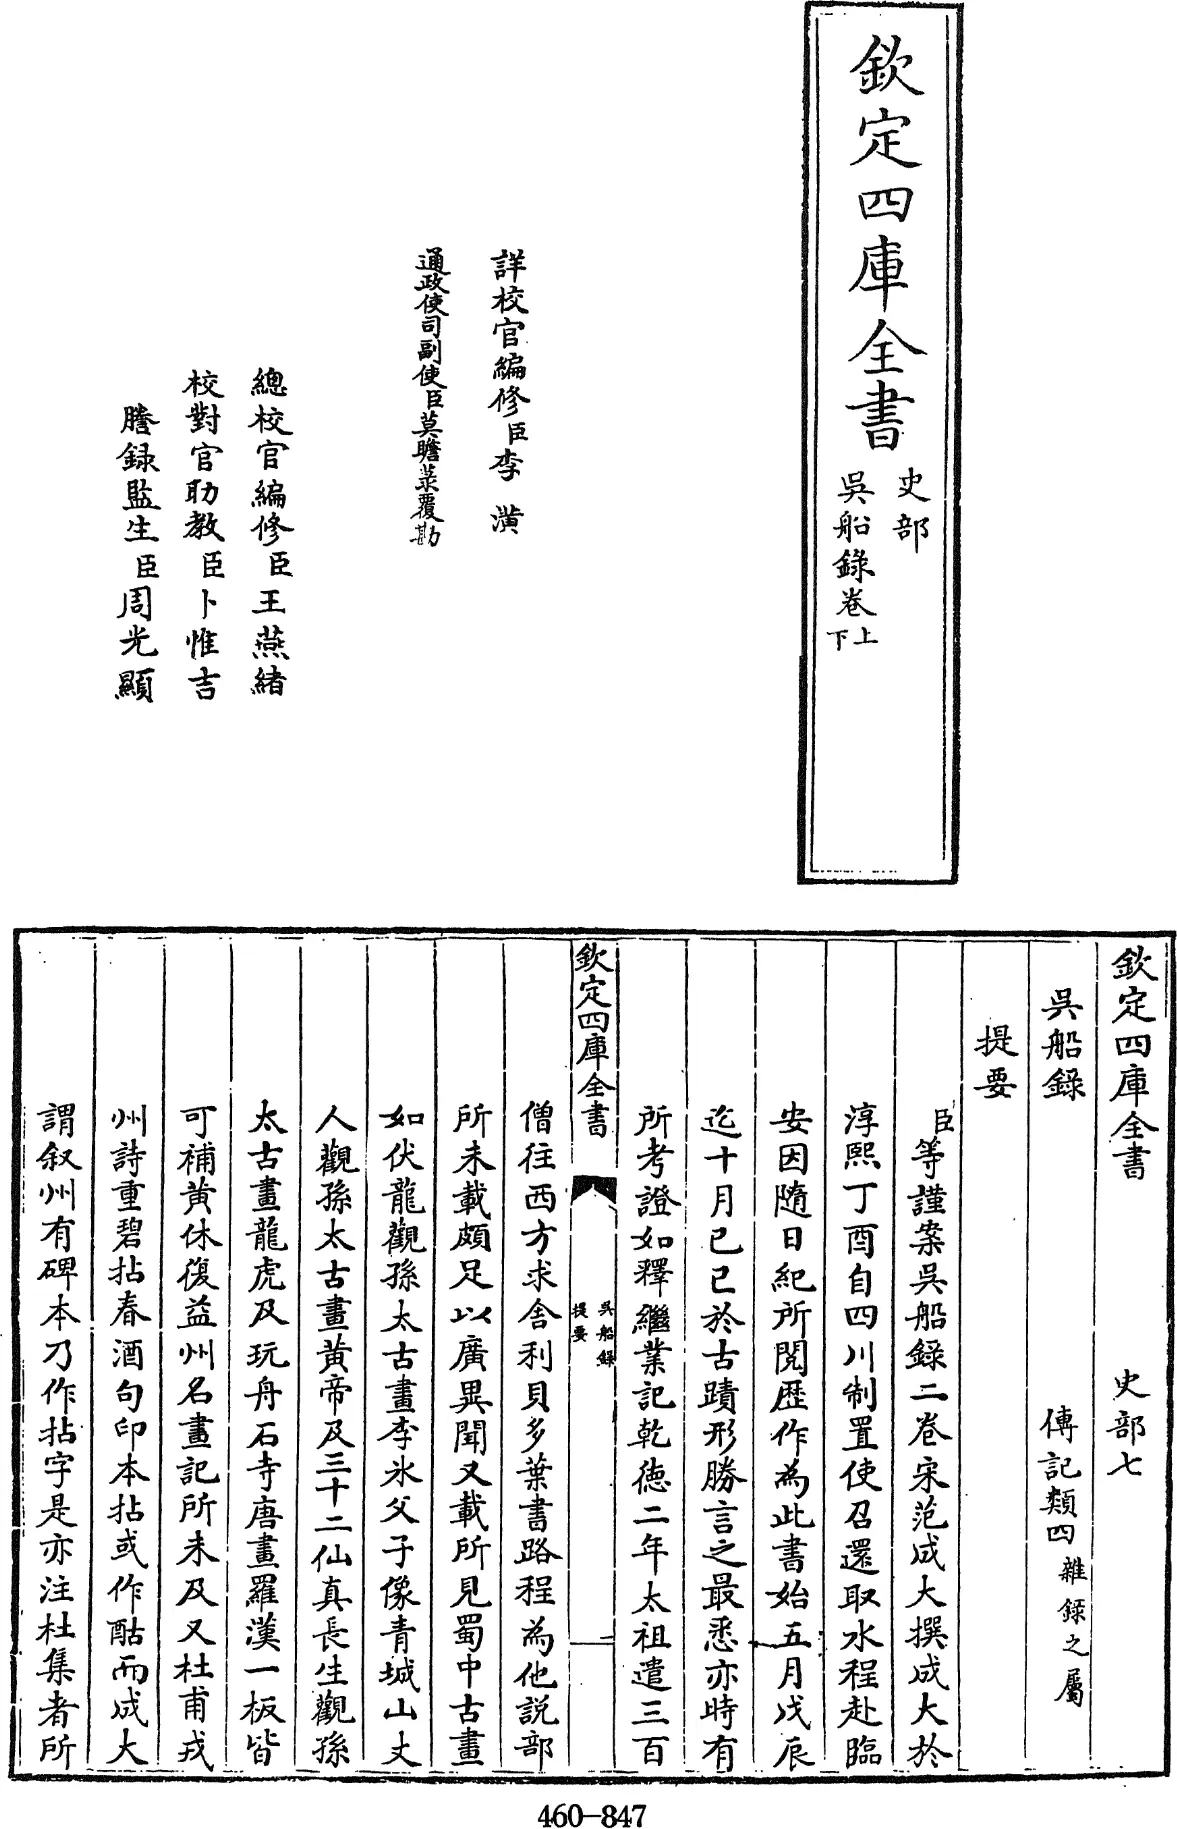 欽定四庫全書
史部
吳船錄卷上下
詳校官編修臣李潢
通政使司副使臣莫瞻菉覆勘
總校官編修臣王燕緒
校對官助教臣卜惟吉
謄錄監生臣周光顯
欽定四庫全書 史部七
吳船錄 傳記類四雜錄之屬
提要
臣等謹案吳船錄二卷宋范成大撰成大於
淳熙丁酉自四川制置使召還取水程赴臨
安因隨日紀所閱歴作為此書始五月戊辰
迄十月己巳於古蹟形勝言之最悉亦時有
所考證如釋繼業記乾徳二年太祖遣三百
欽定四庫全書
吳船錄
提要
僧往西方求舍利貝多葉書路程為他説部
所未載頗足以廣異聞又載所見蜀中古畫
如伏龍觀孫太古畫李氷父子像青城山丈
人觀孫太古畫黄帝及三十二仙真長生觀孫
太古畫龍虎及玩丹石寺唐畫羅漢一板皆
可補黄休復益州名畫記所未及又杜甫戎
州詩重碧拈春酒句印本拈或作酤而成大
謂叙州有碑本乃作拈字是亦注杜集者所
460-847